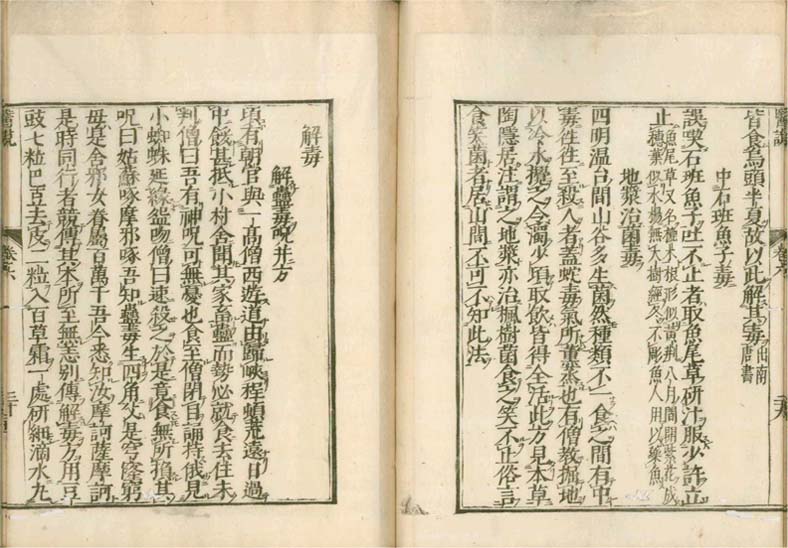 醫說
卷六
皆食烏頭半夏故以此解其毒 出南唐書
中石班魚子毒
誤喫石班魚子吐不止者取魚尾草研汁服少許立
止 魚尾草又名樚木根形似黃荊八月間開紫花成
穗葉似水楊無大樹經冬不彫魚人用以藥魚
地漿治菌毒
四明溫台間山谷多生菌然種類不一食之間有中
毒往往至殺人者蓋蛇毒氣所薰蒸也有僧教掘地
以冷水攪之令濁少頃取飲皆得全活此方見本草
陶隱居注謂之地漿亦治楓樹菌食之笑不止俗言
食笑菌者居山間不可不知此法
解毒
解蠱毒呪并方
頃有朝官與一高僧西遊道由歸峽程頓荒遠日過
中餒甚抵小村舍聞其家畜蠱而勢必就食去住未
判僧曰吾有神呪可無憂也食至僧閉目誦持俄見
小蜘蛛延緣盌吻僧曰速殺之於是竟食無所損其
呪曰姑蘇啄摩邪啄吾知蠱毒生四角父是穹窿窮
毋是舍邪女眷屬百萬千吾今悉知汝摩訶薩摩訶
是時同行者競傳其本所至無恙別傳解毒方用豆
豉七粒巴豆去皮二粒入百草霜一處研細滴水丸
醫說
卷六